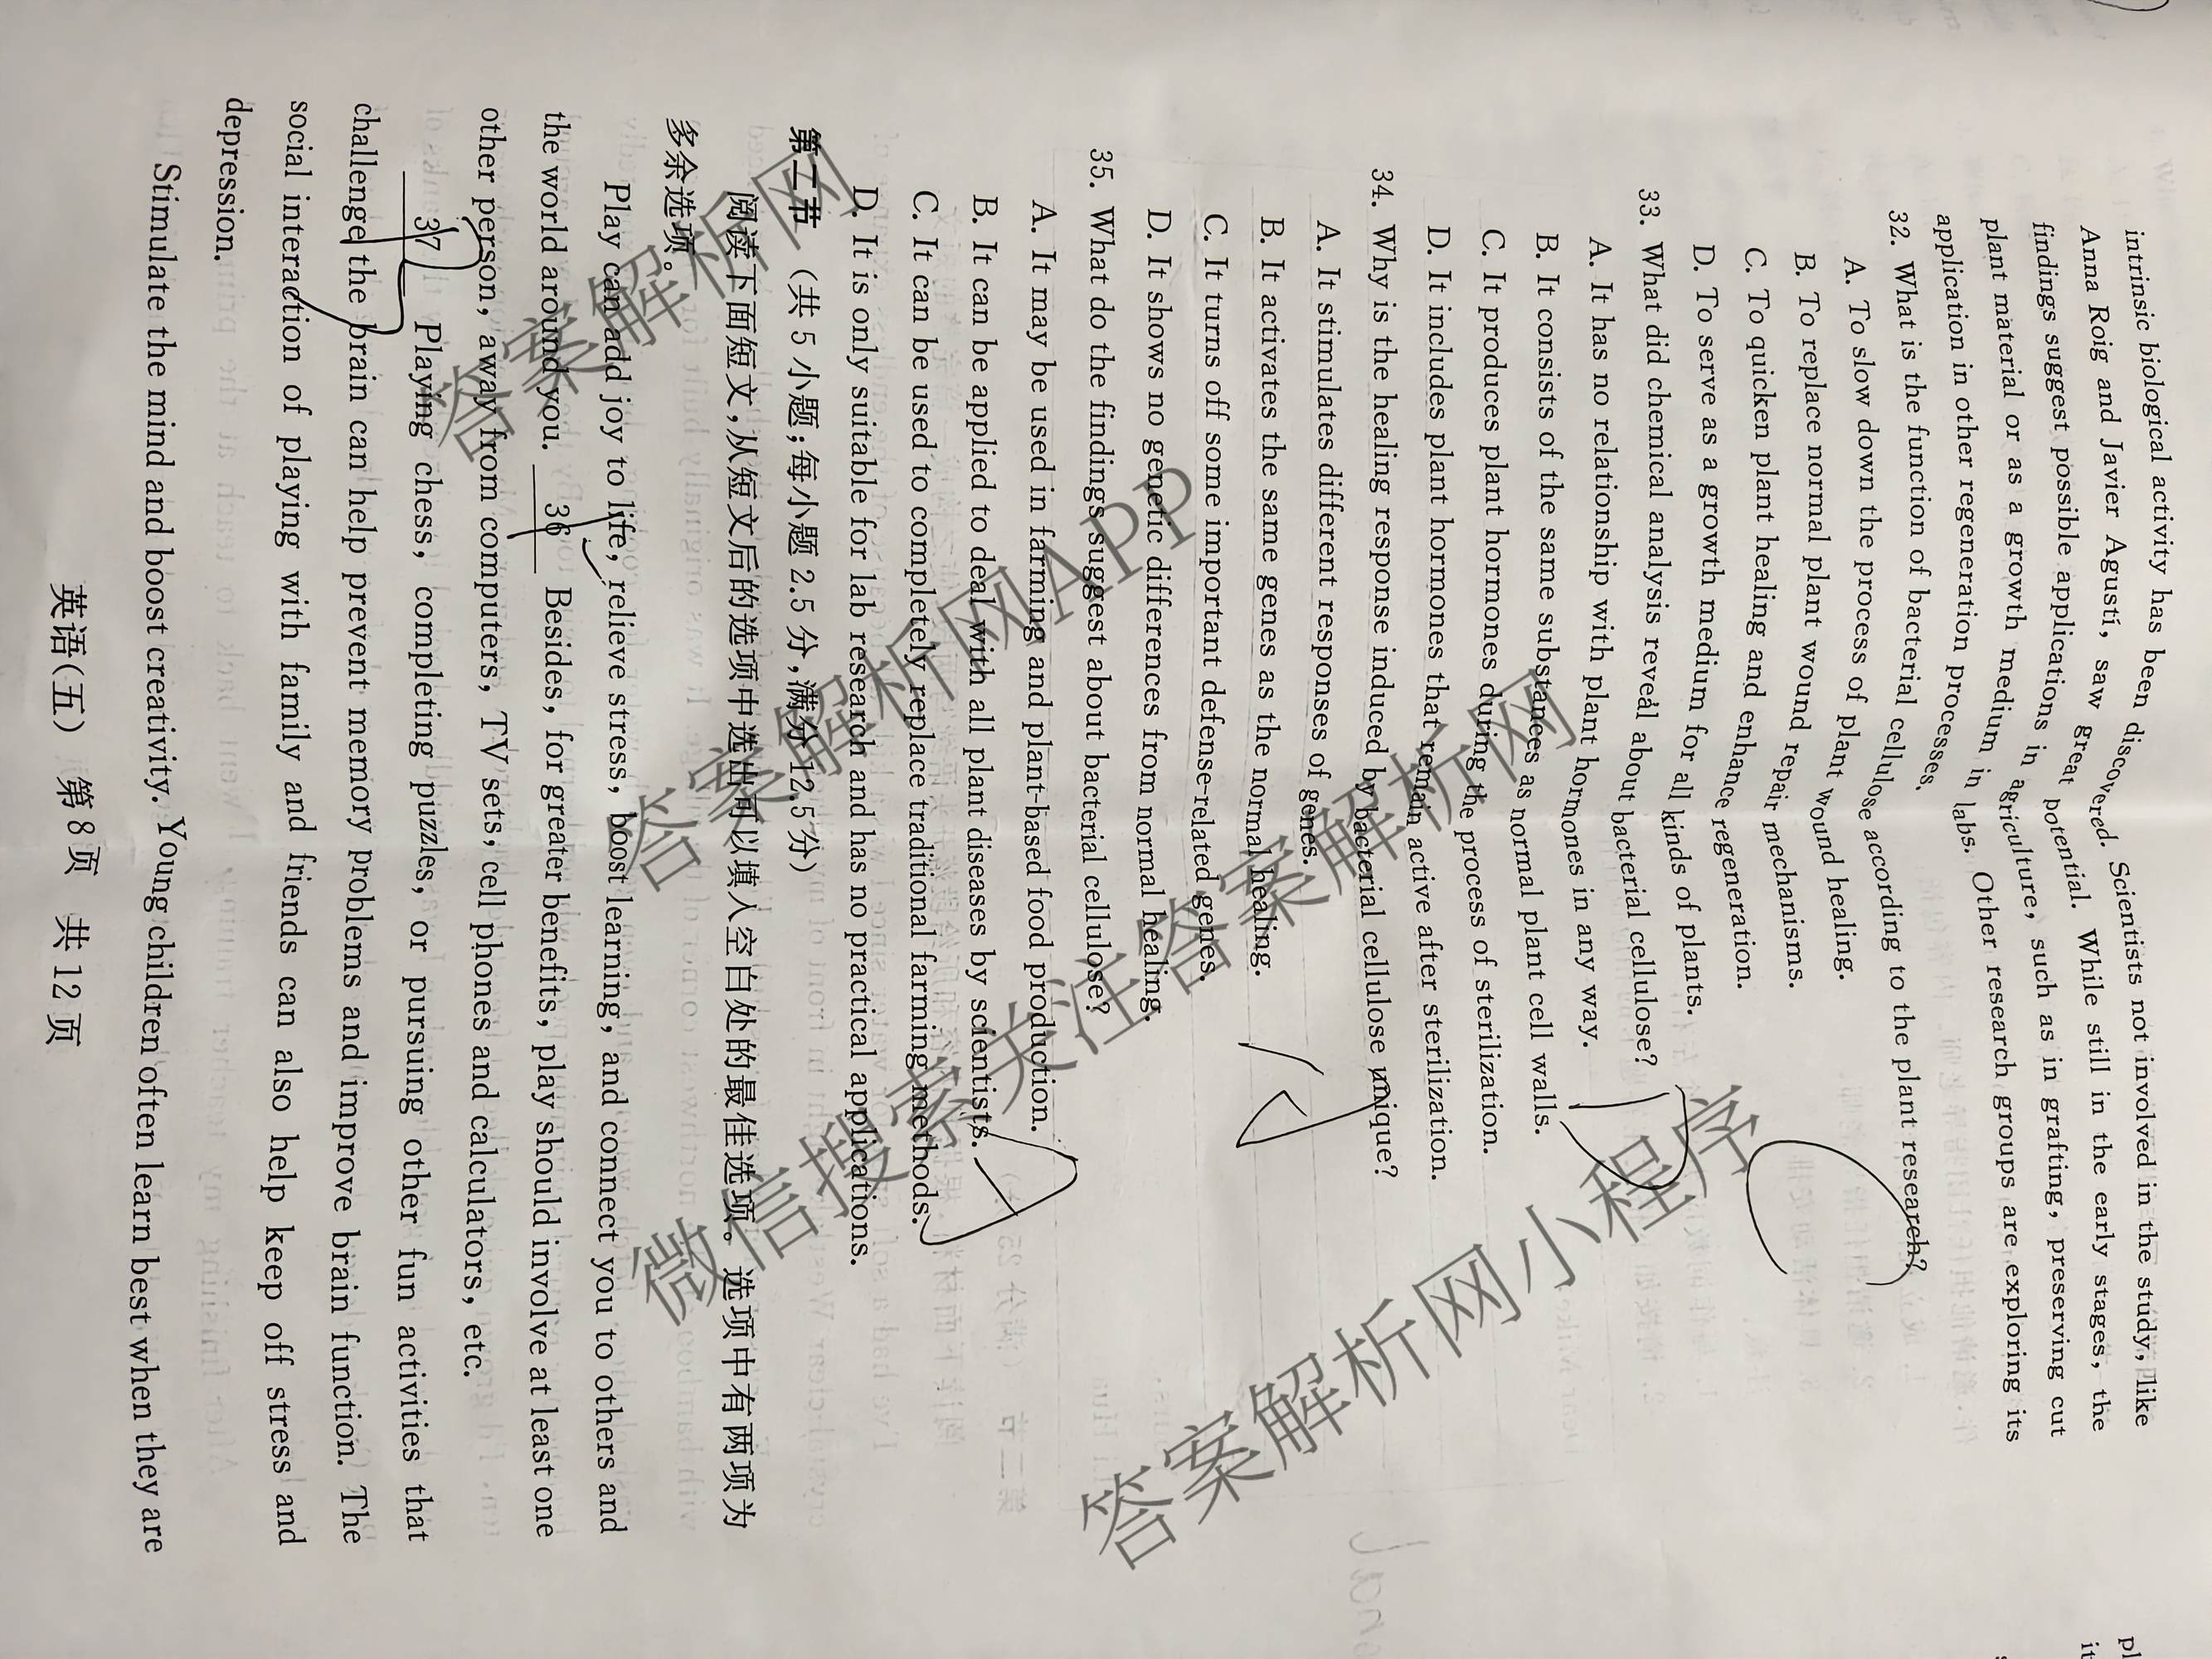 intrinsic biological activity has been discovered. Scientists not involved in the study, like
Anna Roig and Javier Agustí, saw great potential. While still in the early stages, the
findings suggest possible applications in agriculture, such as in grafting, preserving cut
plant material or as a growth medium in labs. Other research groups are exploring its
application in other regeneration processes.
32. What is the function of bacterial cellulose according to the plant research?
A. To slow down the process of plant wound healing.
B. To replace normal plant wound repair mechanisms.
C. To quicken plant healing and enhance regeneration.
D. To serve as a growth medium for all kinds of plants.
33. What did chemical analysis reveal about bacterial cellulose?
A. It has no relationship with plant hormones in any way.
B. It consists of the same substances as normal plant cell walls.
C. It produces plant hormones during the process of sterilization.
D. It includes plant hormones that remain active after sterilization.
34. Why is the healing response induced by bacterial cellulose unique?
A. It stimulates different responses of genes.
B. It activates the same genes as the normal healing.
C. It turns off some important defense-related genes.
D. It shows no genetic differences from normal healing.
35. What do the findings suggest about bacterial cellulose?
A. It may be used in farming and plant-based food production.
B. It can be applied to deal with all plant diseases by scientists.
C. It can be used to completely replace traditional farming methods.
D. It is only suitable for lab research and has no practical applications.
第二节 (共5小题;每小题2.5分,满分12.5分)
阅读下面短文,从短文后的选项中选出可以填入空白处的最佳选项。选项中有两项为
多余选项。
Play can add joy to life, relieve stress, boost learning, and connect you to others and
the world around you. 36 Besides, for greater benefits, play should involve at least one
other person, away from computers, TV sets, cell phones and calculators, etc.
37 Playing chess, completing puzzles, or pursuing other fun activities that
challenge the brain can help prevent memory problems and improve brain function. The
social interaction of playing with family and friends can also help keep off stress and
depression.
Stimulate the mind and boost creativity. Young children often learn best when they are
英语(五) 第8页 共12页
答案解析网
答案解析网APP
微信搜索关注答案解析网
答案解析网小程序